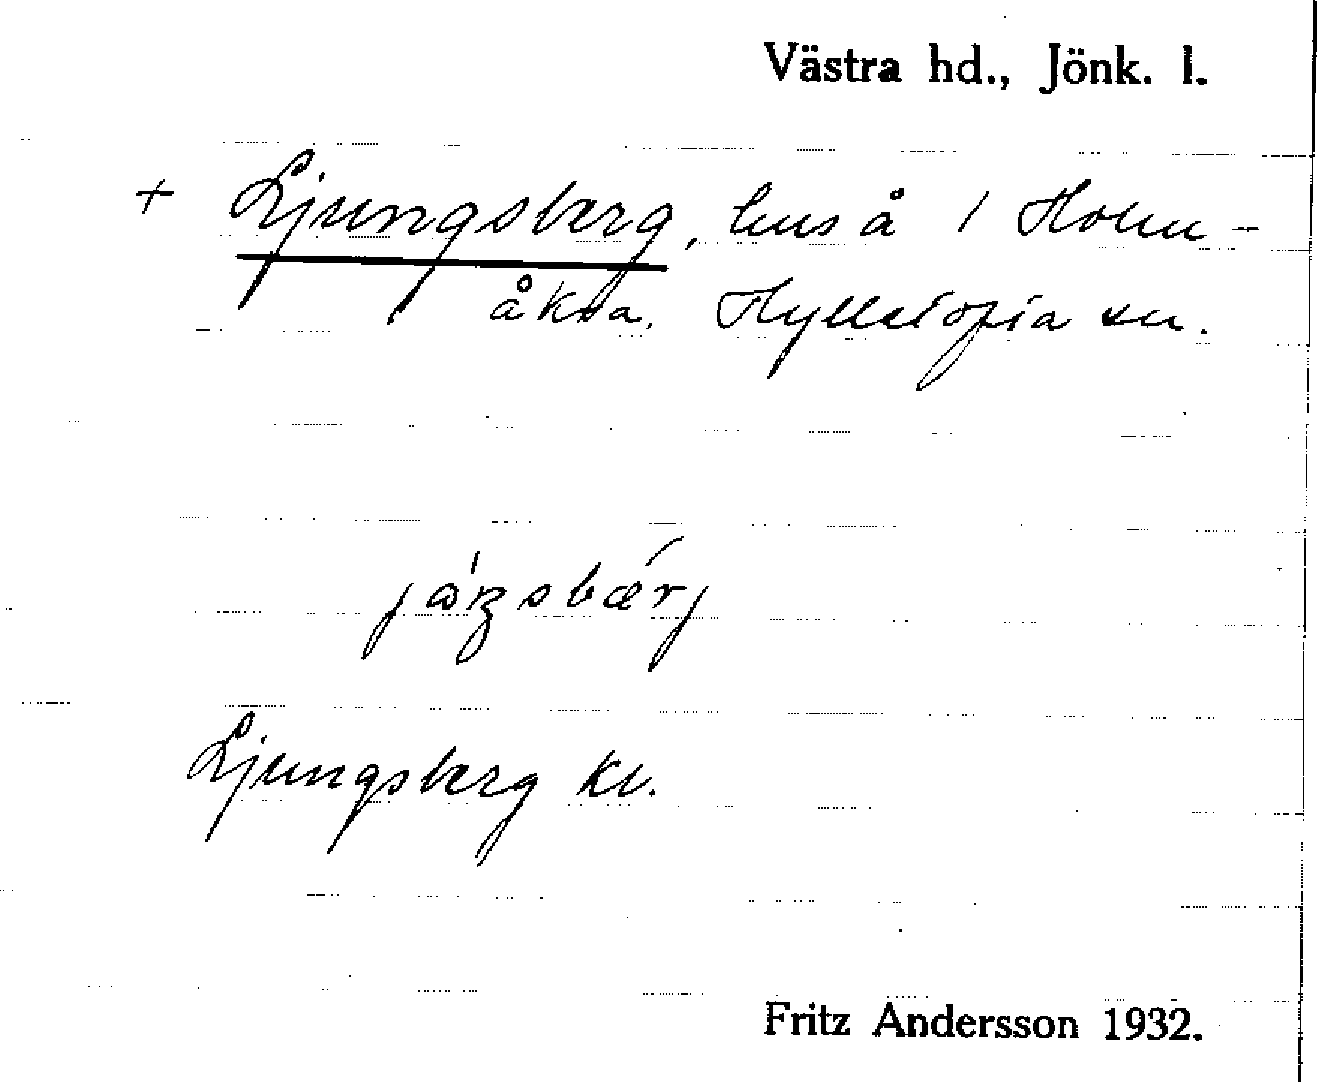 Västra hd., Jönk. l.
+ Ljungsberg, hus å 1 Holm-
åkra. Hyllstofta sn.
Ljungsberg kl.
Fritz Andersson 1932.